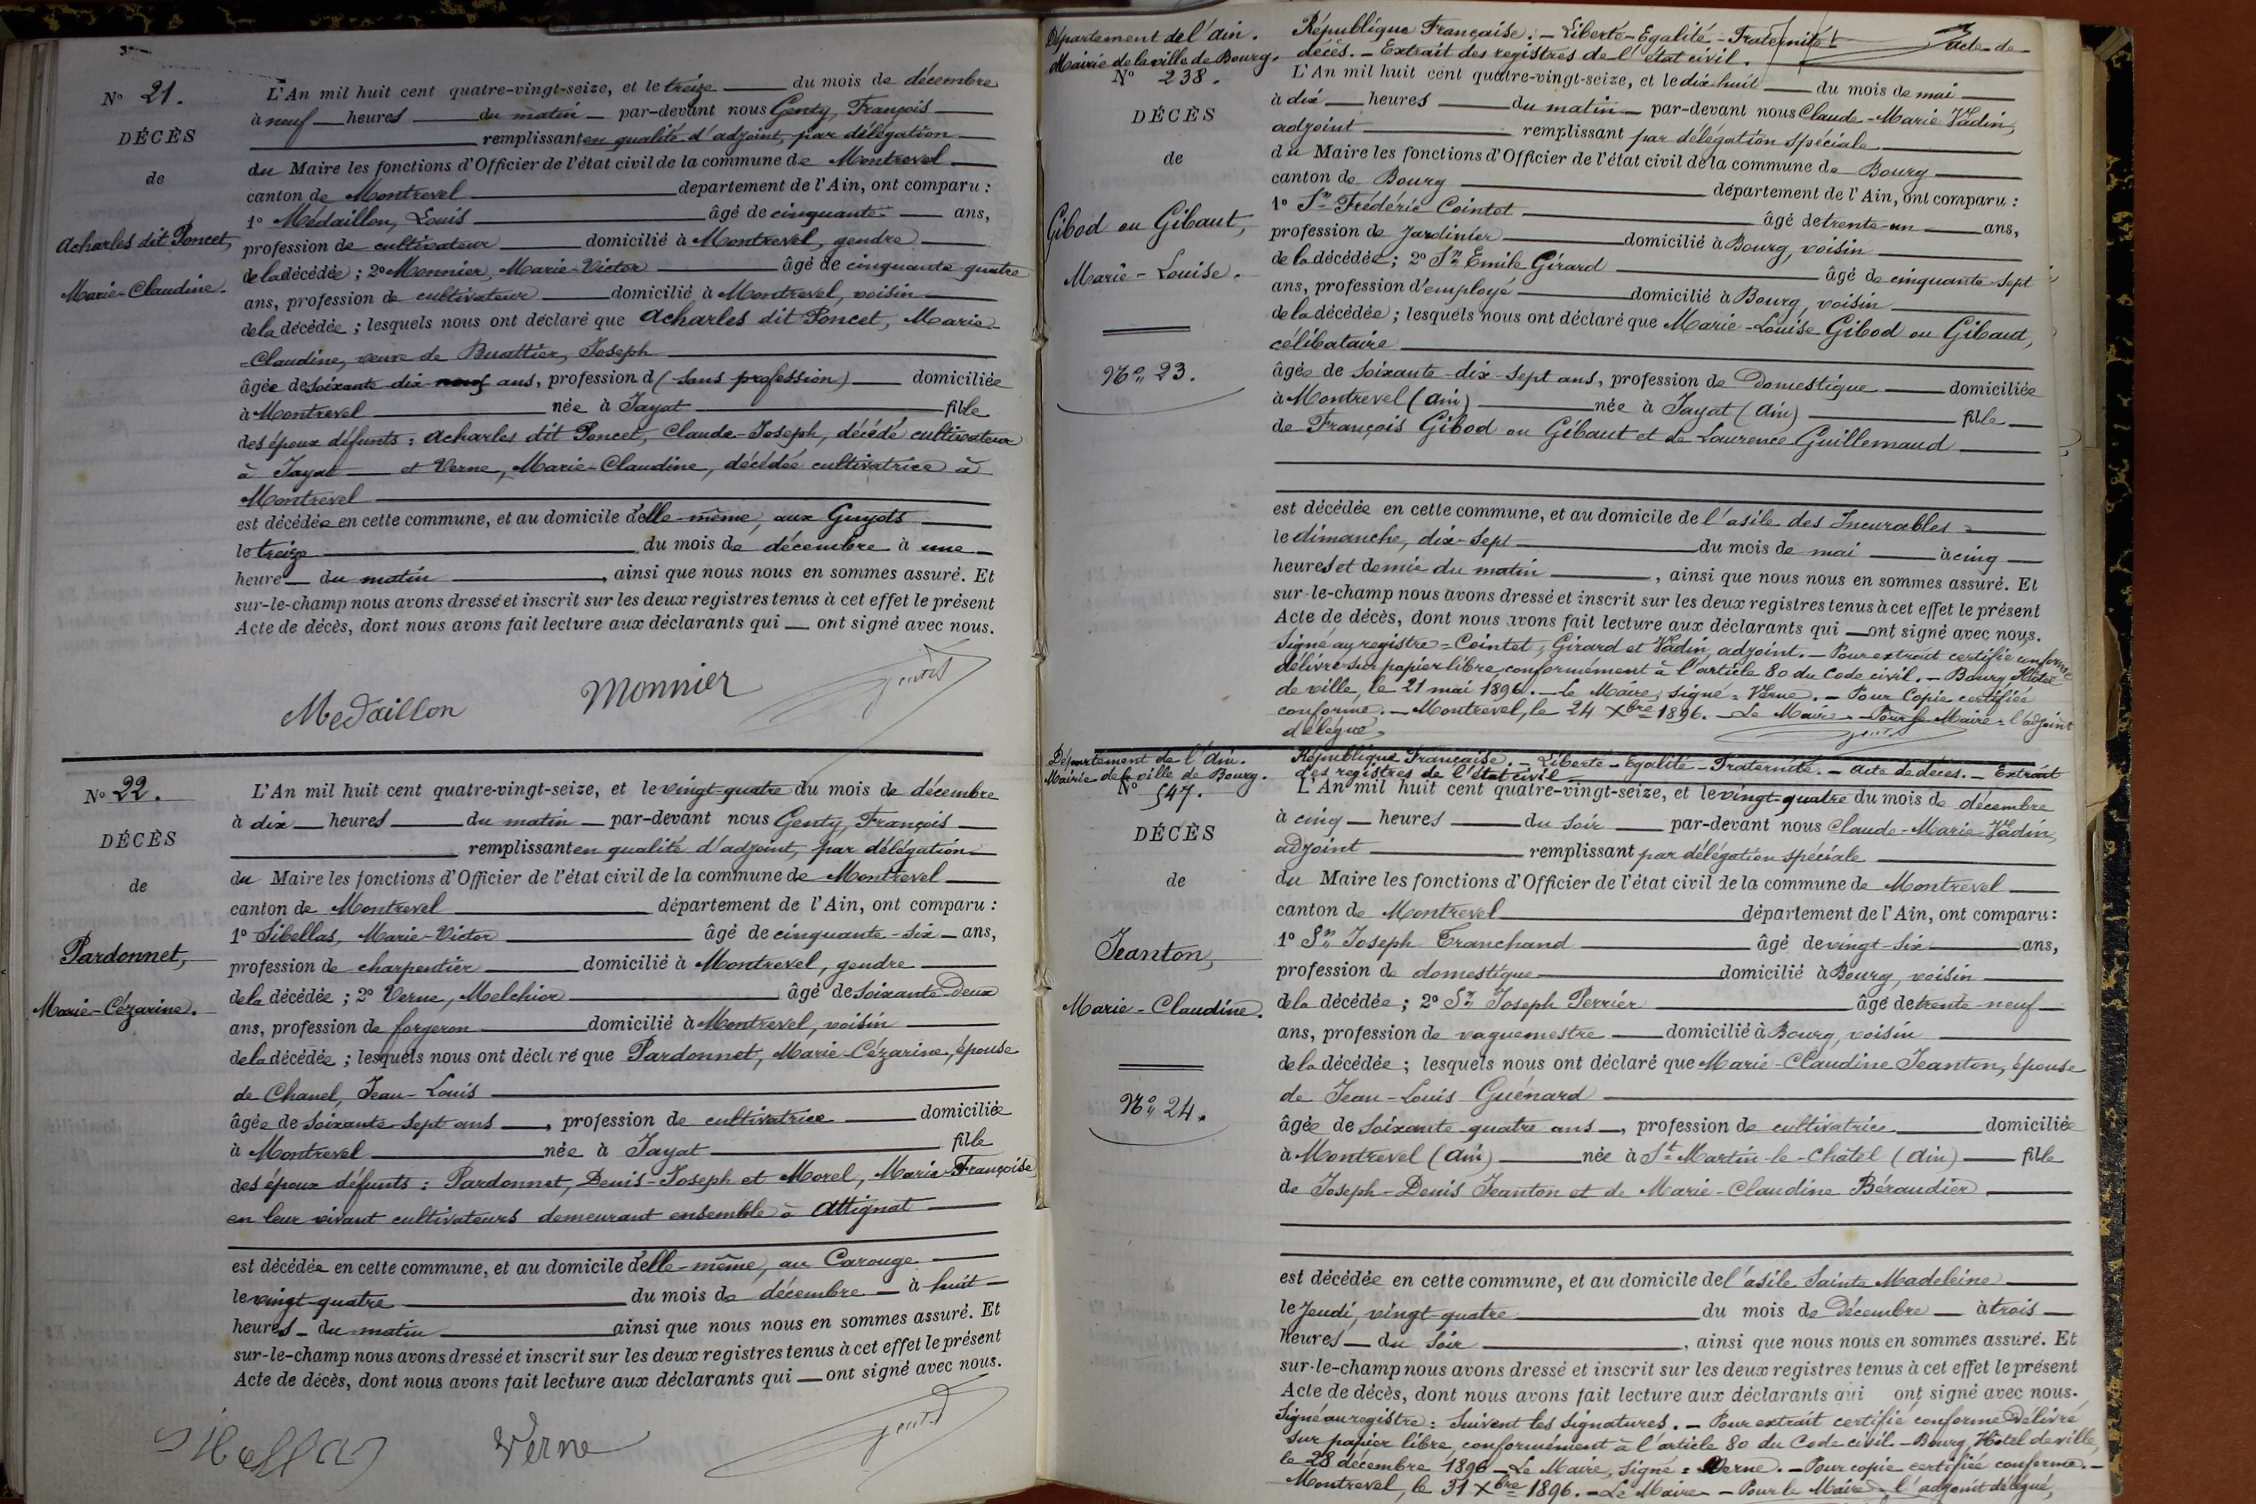 3
N° 21.
DÉCÈS
de
Acharles dit Poncet,
Marie-Claudine.
L'An mil huit cent quatre-vingt-seize, et le treize du mois de décembre
à neuf heures du matin par-devant nous Genty, François
remplissant en qualité d'adjoint, par délégation
du Maire les fonctions d'Officier de l'état civil de la commune de Montrevel
canton de Montrevel département de l'Ain, ont comparu :
1° Médaillon, Louis âgé de cinquante ans,
profession de cultivateur domicilié à Montrevel, gendre
de la décédée ; 2° Monnier, Marie-Victor âgé de cinquante quatre
ans, profession de cultivateur domicilié à Montrevel, voisin
de la décédée ; lesquels nous ont déclaré que Acharles dit Poncet, Marie-
-Claudine, veuve de Buattier, Joseph
âgée de soixante dix neuf ans, profession d (sans profession) domiciliée
à Montrevel née à Jayat fille
des époux défunts : Acharles dit Poncet, Claude-Joseph, décédé cultivateur
à Jayat et Verne, Marie-Claudine, décédée cultivatrice à
Montrevel
est décédée en cette commune, et au domicile d'elle-même, aux Guyots
le treize du mois de décembre à une
heure du matin, ainsi que nous nous en sommes assuré. Et
sur-le-champ nous avons dressé et inscrit sur les deux registres tenus à cet effet le présent
Acte de décès, dont nous avons fait lecture aux déclarants qui ont signé avec nous.
Médaillon Monnier Genty
N° 22.
DÉCÈS
de
Pardonnet,
Marie-Cézarine.
L'An mil huit cent quatre-vingt-seize, et le vingt-quatre du mois de décembre
à dix heures du matin par-devant nous Genty, François
remplissant en qualité d'adjoint, par délégation
du Maire les fonctions d'Officier de l'état civil de la commune de Montrevel
canton de Montrevel département de l'Ain, ont comparu :
1° Sibellas, Marie-Victor âgé de cinquante-six ans,
profession de charpentier domicilié à Montrevel, gendre
de la décédée ; 2° Verne, Melchior âgé de soixante-deux
ans, profession de forgeron domicilié à Montrevel, voisin
de la décédée ; lesquels nous ont déclaré que Pardonnet, Marie-Cézarine, épouse
de Chanel, Jean-Louis
âgée de soixante-sept ans, profession de cultivatrice domiciliée
à Montrevel née à Jayat fille
des époux défunts : Pardonnet, Denis-Joseph et Morel, Marie-Françoise
en leur vivant cultivateurs demeurant ensemble à Attignat
est décédée en cette commune, et au domicile d'elle-même, au Carouge
le vingt-quatre du mois de décembre à huit
heures du matin ainsi que nous nous en sommes assuré. Et
sur-le-champ nous avons dressé et inscrit sur les deux registres tenus à cet effet le présent
Acte de décès, dont nous avons fait lecture aux déclarants qui ont signé avec nous.
Sibellas Verne Genty
Département de l'Ain.
Mairie de la ville de Bourg.
N° 238.
DÉCÈS
de
Gibod ou Gibaut,
Marie-Louise.
N° 23.
République Française. - Liberté - Egalité - Fraternité. Acte de
décès. - Extrait des registres de l'état civil.
L'An mil huit cent quatre-vingt-seize, et le dix-huit du mois de mai
à dix heures du matin par-devant nous Claude-Marie Vadin,
adjoint remplissant par délégation spéciale
du Maire les fonctions d'Officier de l'état civil de la commune de Bourg
canton de Bourg département de l'Ain, ont comparu :
1° Sr Frédéric Cointet âgé de trente-un ans,
profession de jardinier domicilié à Bourg, voisin
de la décédée ; 2° Sr Emile Girard âgé de cinquante-sept
ans, profession d'employé domicilié à Bourg, voisin
de la décédée ; lesquels nous ont déclaré que Marie-Louise Gibod ou Gibaut,
célibataire
âgée de soixante-dix-sept ans, profession de Domestique domiciliée
à Montrevel (Ain) née à Jayat (Ain) fille
de François Gibod ou Gibaut et de Laurence Guillemaud
est décédée en cette commune, et au domicile de l'asile des Incurables
le dimanche, dix-sept du mois de mai à cinq
heures et demie du matin, ainsi que nous nous en sommes assuré. Et
sur-le-champ nous avons dressé et inscrit sur les deux registres tenus à cet effet le présent
Acte de décès, dont nous avons fait lecture aux déclarants qui ont signé avec nous.
Signé au registre = Cointet, Girard et Vadin, adjoint. - Pour extrait certifié conforme
délivré sur papier libre, conformément à l'article 80 du Code civil. - Bourg Hôtel
de ville, le 21 mai 1896. - Le Maire, signé = Verne. - Pour Copie certifiée
conforme. - Montrevel, le 24 Xbre 1896. - Le Maire - Pour le Maire = l'adjoint
délégué,
Genty
Département de l'Ain.
Mairie de la ville de Bourg.
N° 547.
DÉCÈS
de
Jeanton,
Marie-Claudine.
N° 24.
République Française. - Liberté - Egalité - Fraternité. - Acte de décès. - Extrait
des registres de l'état civil
L'An mil huit cent quatre-vingt-seize, et le vingt-quatre du mois de décembre
à cinq heures du soir par-devant nous Claude-Marie Vadin,
adjoint remplissant par délégation spéciale
du Maire les fonctions d'Officier de l'état civil de la commune de Montrevel
canton de Montrevel département de l'Ain, ont comparu :
1° Sr Joseph Tranchand âgé de vingt-six ans,
profession de domestique domicilié à Bourg, voisin
de la décédée ; 2° Sr Joseph Perrier âgé de trente-neuf
ans, profession de vaguemestre domicilié à Bourg, voisin
de la décédée ; lesquels nous ont déclaré que Marie-Claudine Jeanton, épouse
de Jean-Louis Guénard
âgée de soixante quatre ans, profession de cultivatrice domiciliée
à Montrevel (Ain) née à St Martin-le-Châtel (Ain) fille
de Joseph-Denis Jeanton et de Marie-Claudine Béraudier
est décédée en cette commune, et au domicile de l'asile Sainte Madeleine
le Jeudi, vingt-quatre du mois de Décembre à trois
heures du soir, ainsi que nous nous en sommes assuré. Et
sur-le-champ nous avons dressé et inscrit sur les deux registres tenus à cet effet le présent
Acte de décès, dont nous avons fait lecture aux déclarants qui ont signé avec nous.
Signé au registre : Suivent les signatures. - Pour extrait certifié conforme Délivré
sur papier libre, conformément à l'article 80 du Code civil. - Bourg, Hôtel de ville,
le 28 décembre 1896 - Le Maire, signé = Verne. - Pour copie certifiée conforme. -
Montrevel, le 31 Xbre 1896. - Le Maire - Pour le Maire - l'adjoint délégué,